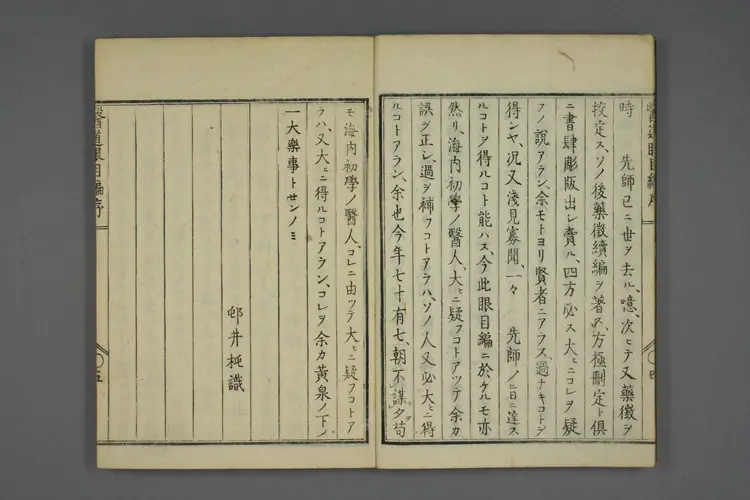 醫道眼目編序
時　先師已ニ世ヲ去ル、噫、次ヒテ又藥徴ヲ
挍定ス、ソノ後藥徴續編ヲ著ス、方極刪定ト俱
ニ書肆彫版出シ賣ル、四方必ス大ヒニコレヲ疑
フノ說アラン、余モトヨリ賢者ニアラス、過ナキコトヲ
得ンヤ、况又淺見寡聞、一々　先師ノヒ曰ニ違ス
ルコトヲ得ルコト能ハス、今此眼目編ニ於ケルモ亦
然リ、海内初學ノ醫人、大ヒニ疑フコトアツテ余カ
誤ヲ正シ、過ヲ補フコトアラハ、ソノ人又必大ヒニ得
ルコトアラン、余也今年七十有七、朝不謀夕、苟
四
モ海内初學ノ醫人、コレニ由ツテ大ヒニ疑フコトア
ラハ、又大ヒニ得ルコトアラン、コレヲ余カ黃泉ノ下ノ
一大樂事トセンノミ
邨井杶識
醫道眼目編序
五